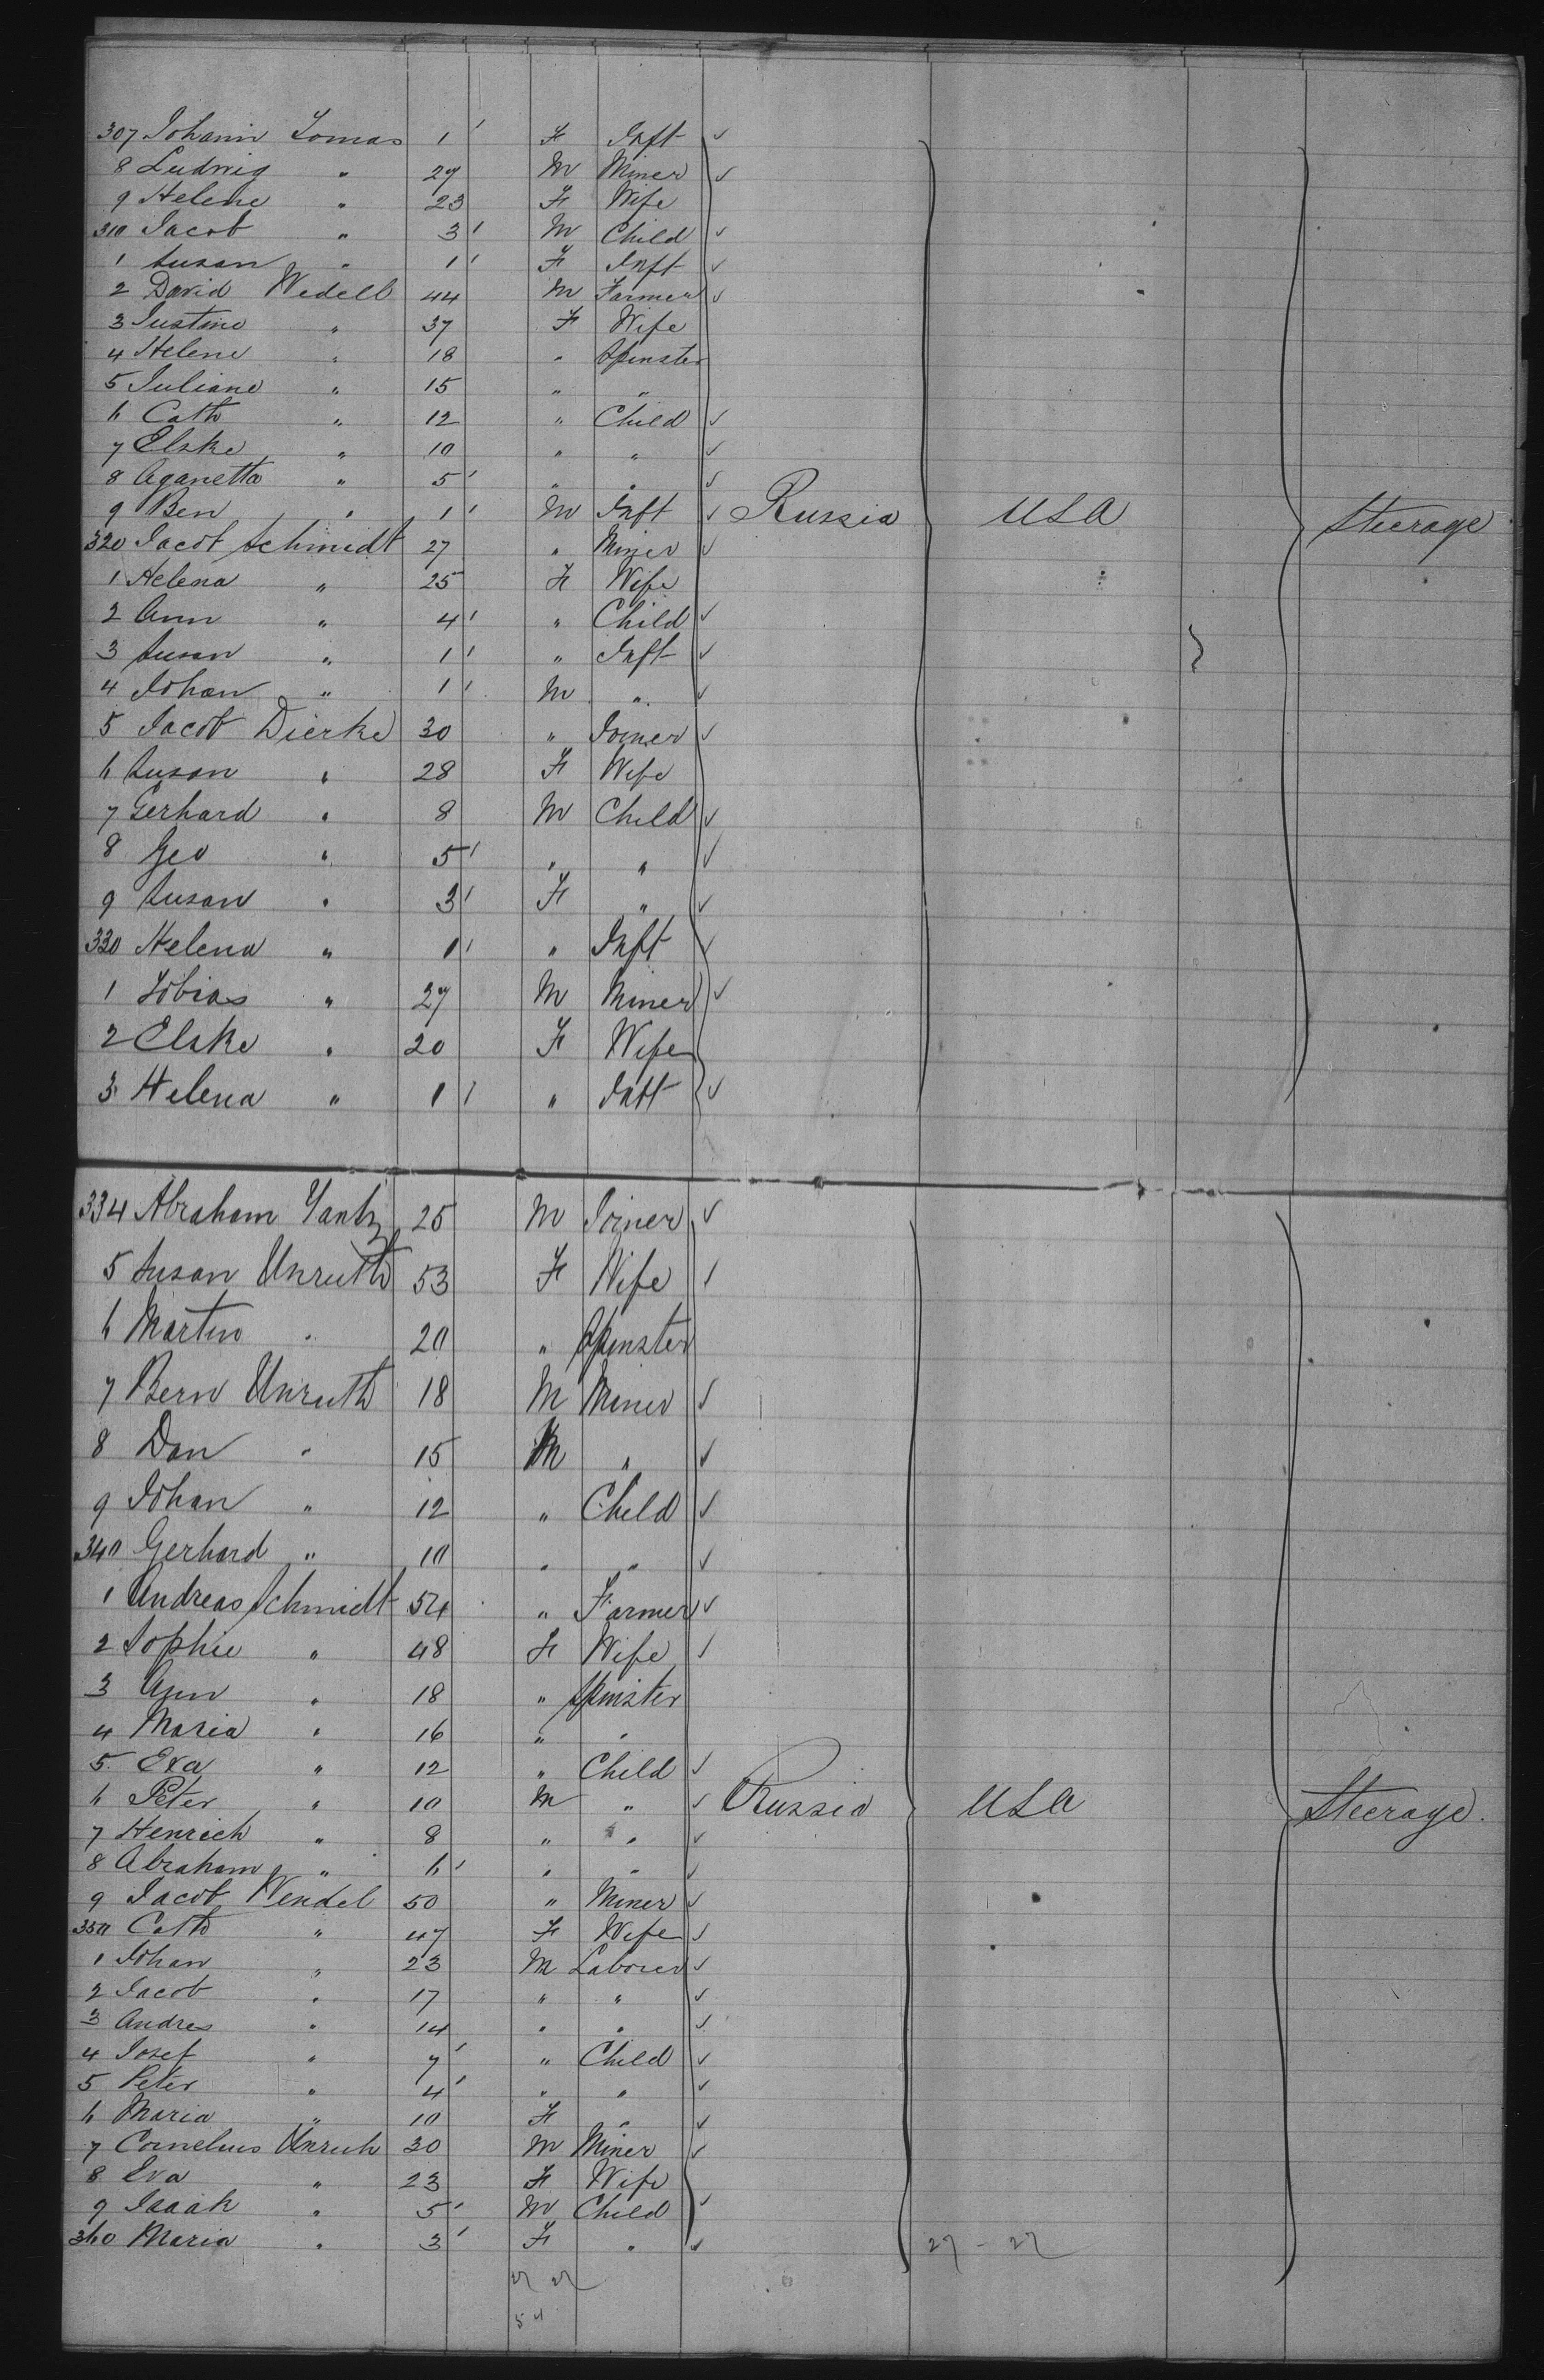 307 Johann Tomas 1 ' F Inft ✓
8 Ludwig " 27 M Miner ✓
9 Helene " 23 F Wife
310 Jacob " 3 ' M Child ✓
1 Susan " 1 ' F Inft ✓
2 David Wedell 44 M Farmer ✓
3 Justine " 37 F Wife
4 Helene " 18 " Spinster
5 Juliane " 15 " "
6 Cath " 12 " Child ✓
7 Elske " 10 " " ✓
8 Aganetta " 5 ' " " ✓
9 Ben " 1 ' M Inft ✓ Russia USA Steerage
320 Jacob Schmidt 27 " Miner ✓
1 Helena " 25 F Wife
2 Ann " 4 ' " Child ✓
3 Susan " 1 ' " Inft ✓
4 Johan " 1 ' M " ✓
5 Jacob Dierke 30 " Joiner ✓
6 Susan " 28 F Wife
7 Gerhard " 8 M Child ✓
8 Geo " 5 ' " " ✓
9 Susan " 3 ' F " ✓
330 Helena " 1 ' " Inft ✓
1 Tobias " 27 M Miner ✓
2 Elske " 20 F Wife
3 Helena " 1 ' " Inft ✓
334 Abraham Yantz 25 M Joiner ✓
5 Susan Unruth 53 F Wife ✓
6 Martin " 20 " Spinster
7 Bern Unruth 18 M Miner ✓
8 Dan " 15 M " ✓
9 Johan " 12 " Child ✓
340 Gerhard " 10 " " ✓
1 Andreas Schmidt 54 " Farmer ✓
2 Sophie " 48 F Wife ✓
3 Ann " 18 " Spinster
4 Maria " 16 " "
5 Eva " 12 " Child ✓
6 Peter " 10 M " ✓ Russia USA Steerage.
7 Henrich " 8 " " ✓
8 Abraham " 6 ' " " ✓
9 Jacob Wendel 50 " Miner ✓
350 Cath " 47 F Wife ✓
1 Johan " 23 M Laborer ✓
2 Jacob " 17 " " ✓
3 Andres " 14 " " ✓
4 Josef " 7 ' " Child ✓
5 Peter " 4 ' " " ✓
6 Maria " 10 F " ✓
7 Cornelius Unruh 30 M Miner ✓
8 Eva " 23 F Wife
9 Isaak " 5 ' M Child ✓
360 Maria " 3 ' F " ✓ 27 - 27
27 27
54